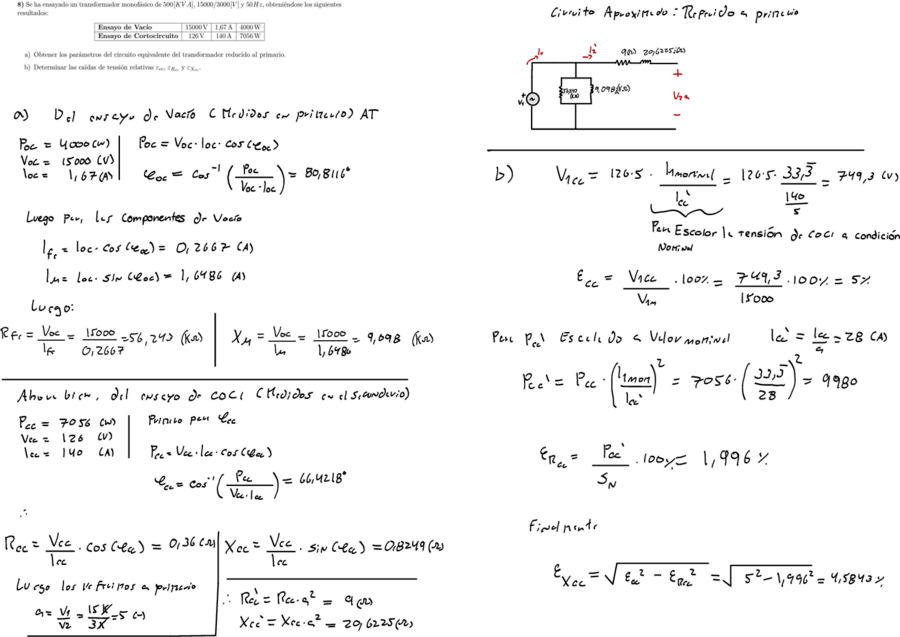 8) Se ha ensayado un transformador monofásico de 500[KVA], 15000/3000[V] y 50Hz, obteniéndose los siguientes
resultados:
Ensayo de Vacío 15000 V 1,67 A 4000 W
Ensayo de Cortocircuito 126 V 140 A 7056 W
a) Obtener los parámetros del circuito equivalente del transformador reducido al primario.
b) Determinar las caídas de tensión relativas εcc, εRcc y εXcc.
a) Del ensayo de Vacío (Medidos en primario) AT
Poc = 4000 (W)
Voc = 15000 (V)
Ioc = 1,67 (A)
Poc = Voc · Ioc · cos(φoc)
φoc = cos⁻¹ (Poc / Voc · Ioc) = 80,8116°
Luego para las componentes de Vacío
Ifr = Ioc · cos(φoc) = 0,2667 (A)
Iμ = Ioc · sin(φoc) = 1,6486 (A)
Luego:
RFr = Voc / Ifr = 15000 / 0,2667 = 56,243 (KΩ)
Xμ = Voc / Iμ = 15000 / 1,6486 = 9,098 (KΩ)
Ahora bien, del ensayo de COCI (Medidos en el secundario)
Pcc = 7056 (W)
Vcc = 126 (V)
Icc = 140 (A)
Primero para φcc
Pcc = Vcc · Icc · cos(φcc)
φcc = cos⁻¹ (Pcc / Vcc · Icc) = 66,4218°
∴
Rcc = Vcc / Icc · cos(φcc) = 0,36 (Ω)
Xcc = Vcc / Icc · sin(φcc) = 0,8249 (Ω)
Luego los referimos a primario
a = V1 / V2 = 15K / 3K = 5 (-)
∴ Rcc' = Rcc · a² = 9 (Ω)
Xcc' = Xcc · a² = 20,6225 (Ω)
Circuito Aproximado: Referido a primario
I1
I2'
9Ω
20,6225jΩ
V1
+
9,098j(KΩ)
+
V2a
-
b) V1cc = 126·5 · I1nominal / Icc' = 126·5 · 33,3̅ / (140 / 5) = 749,3 (V)
Para Escalar la tensión de COCI a condición
Nominal
εcc = V1cc / V1n · 100% = 749,3 / 15000 · 100% = 5%
Para Pcc' Escalado a Valor nominal Icc' = Icc / a = 28 (A)
Pcc' = Pcc · (I1nom / Icc')² = 7056 · (33,3̅ / 28)² = 9980
εRcc = Pcc' / SN · 100% = 1,996 %
Finalmente
εXcc = √(εcc² − εRcc²) = √(5² − 1,996²) = 4,5843 %